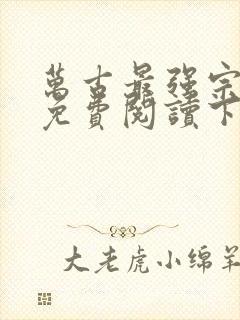 萬古最强宗
免費閱讀下
大老虎小绵羊